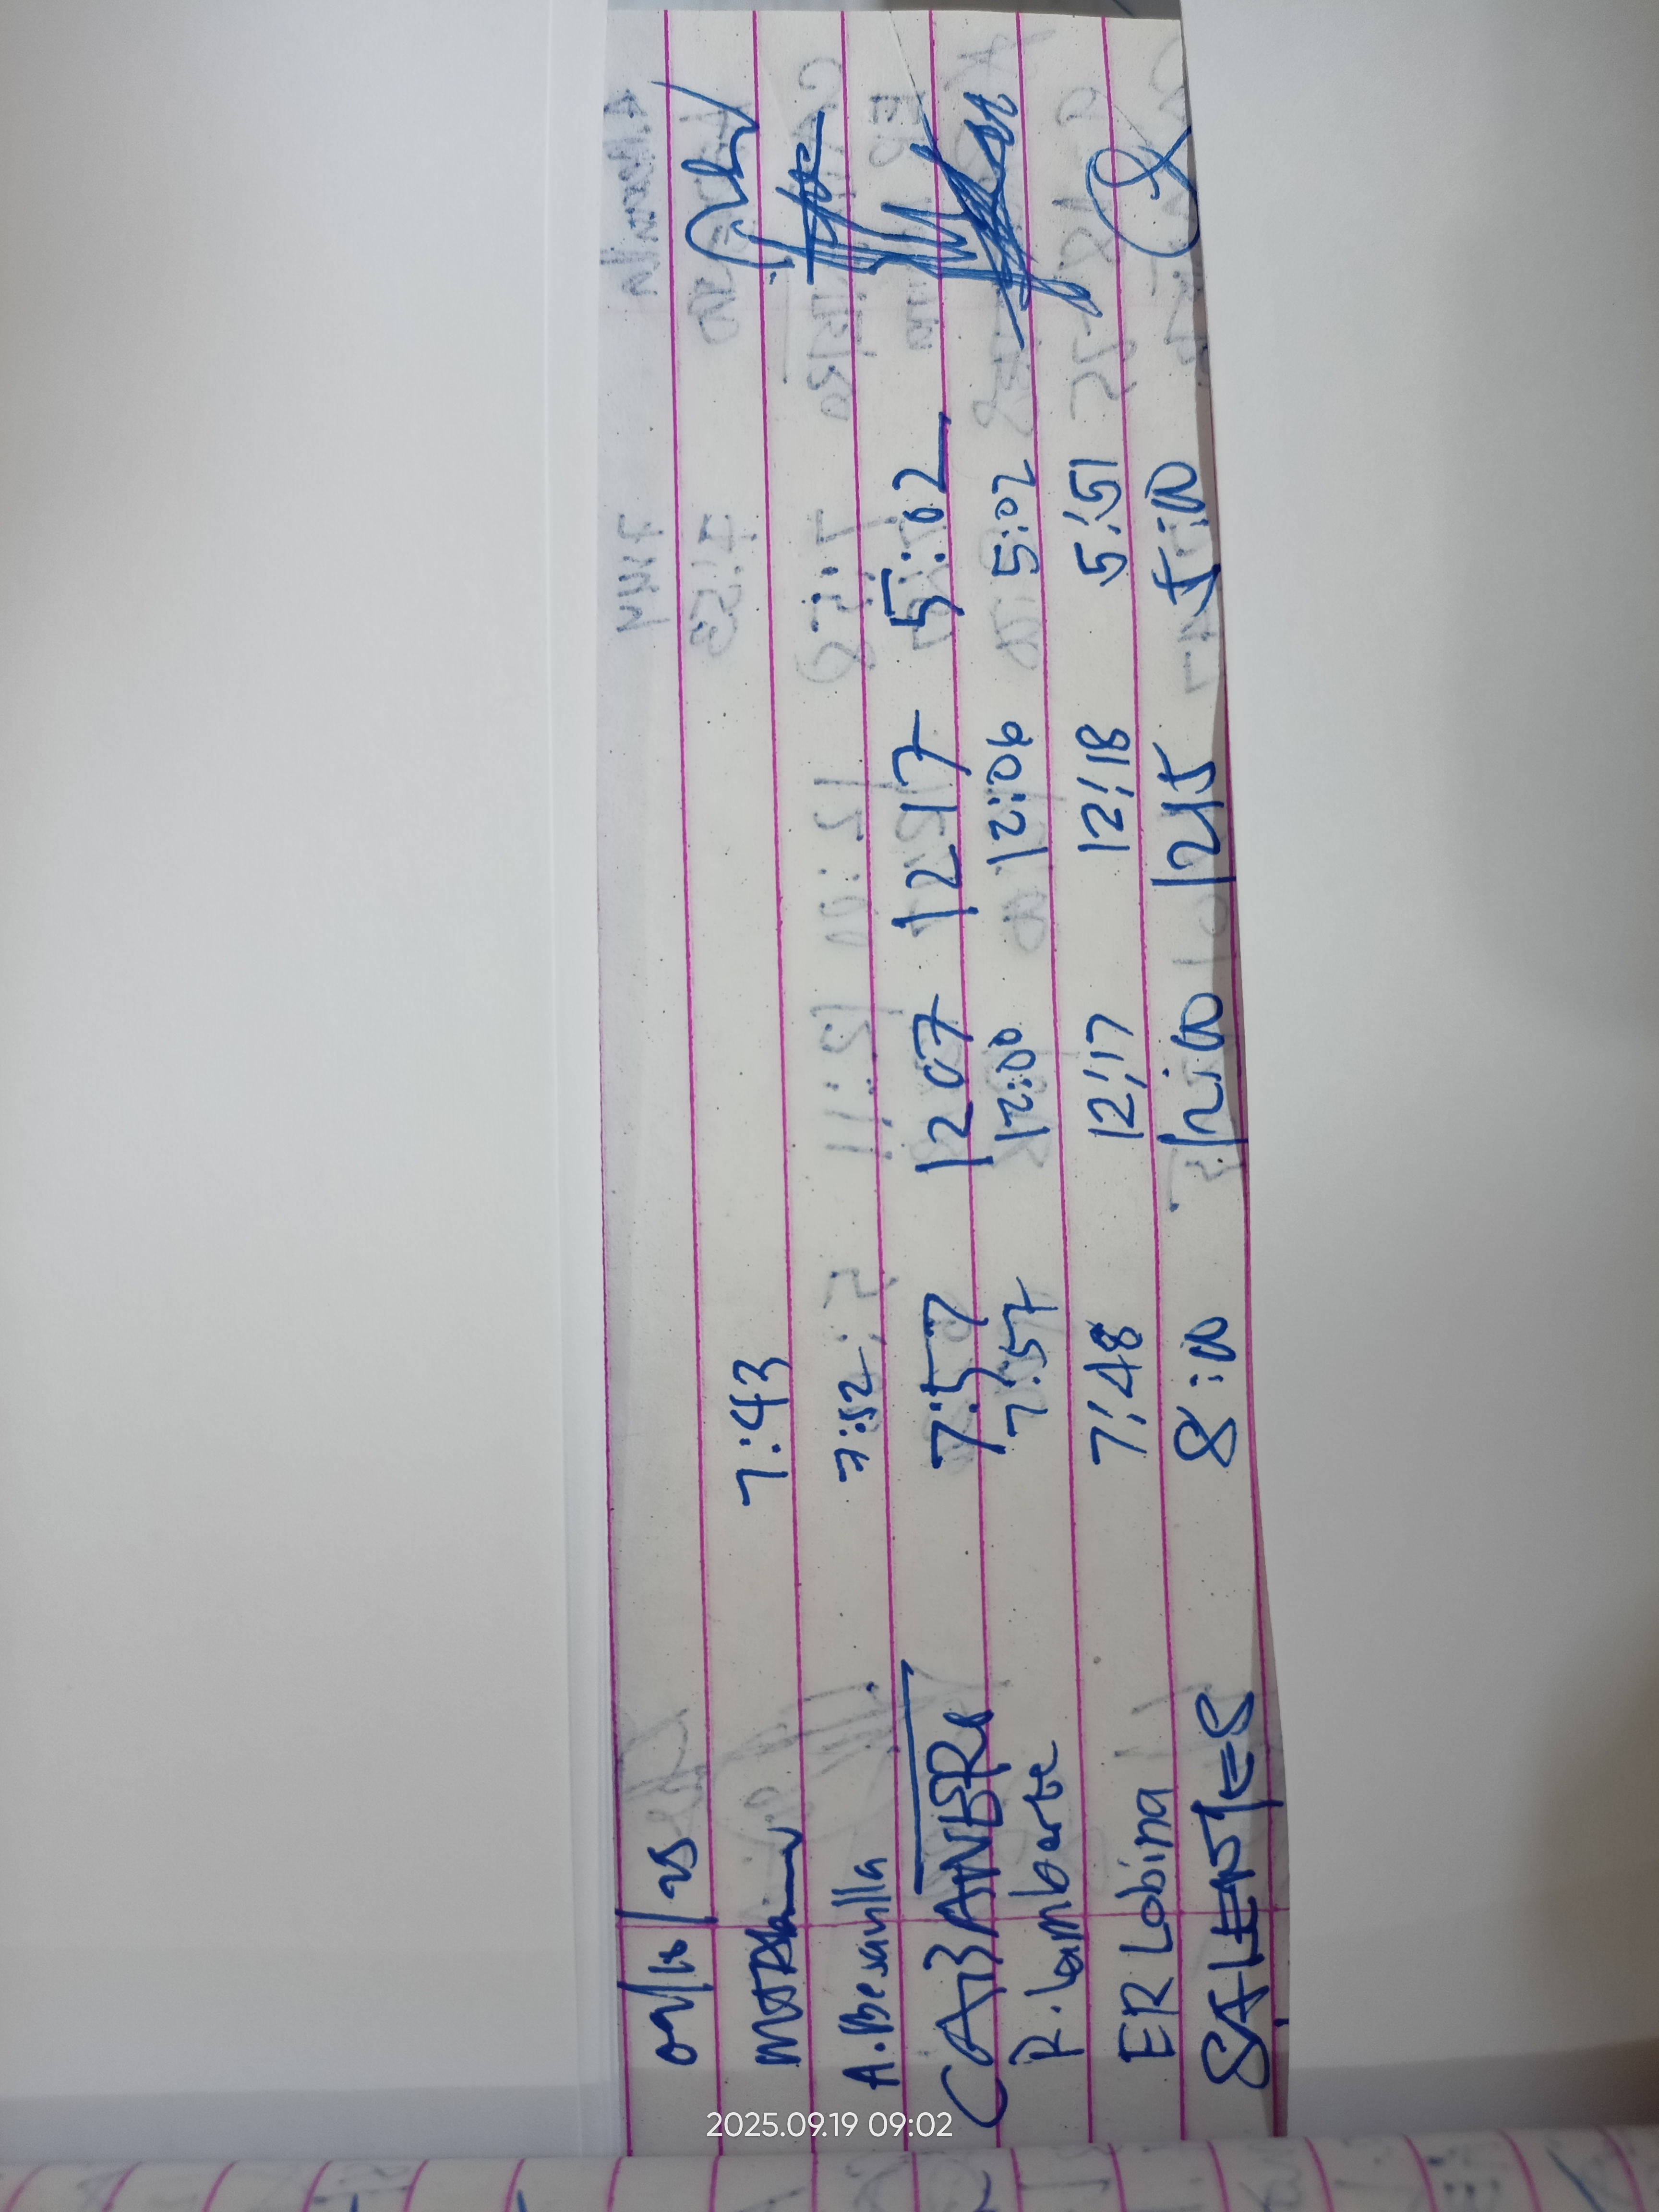 09/18/25
7:43
A. Besanlla 7:52
CABANERO 7:57 1207 1217 5:02
R. Lambarte 7:57 12:00 12:06 5:02
ER Lobina 7:48 12:17 12:18 5:51
8:00 12:00 1215 5:00
2025.09.19 09:02